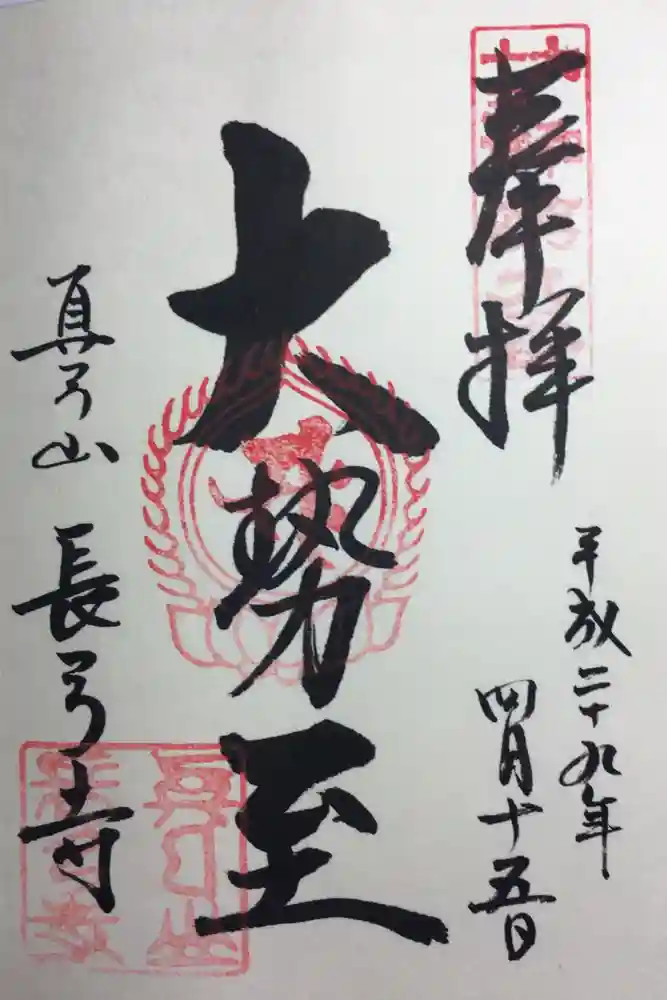 奉拝
平成二十九年
四月十五日
大勢至
真弓山 長弓寺